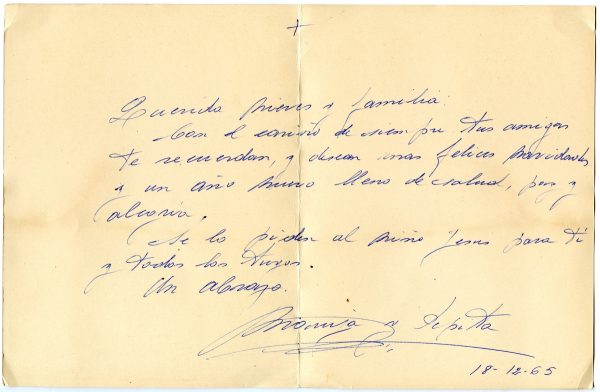 +
Querida Nieves y familia:
Con el cariño de siempre tus amigas
te recuerdan, y desean unas felices Navidades
y un año nuevo lleno de salud, paz y
alegria.
Se lo piden al niño Jesus para ti
y todos los tuyos.
Un abrazo.
y Pepita
18-12-65